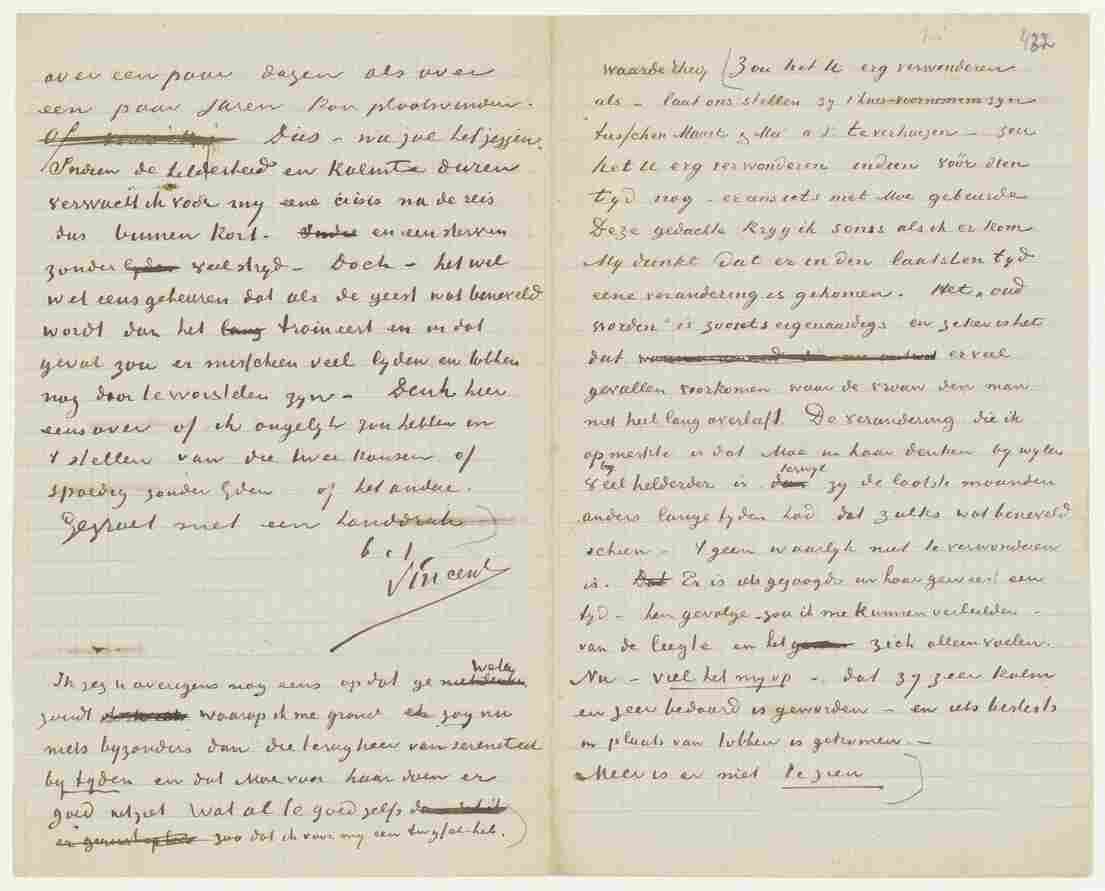 over een paar dagen als over
een paar jaren kon plaatsvinden.
Of Dus – nu zal het zeggen.
Indien de helderheid en kalmte duren
verwacht ik voor my eene crisis na de reis
dus binnen kort. en een sterven
zonder veel stryd – Doch – het wil
wel eens gebeuren dat als de geest wat beneveld
wordt dan het lang traineert en in dat
geval zou er misschien veel lyden en tobben
nog door te worstelen zyn – Denk hier
eens over of ik ongelyk zou hebben in
't stellen van die twee kansen of
spoedig zonder lyden of het andre.
Gegroet met een handdruk
b. à t.
Vincent
Ik zeg u overigens nog eens opdat ge weten
zoudt waarop ik me grond zag nu
niets byzonders dan die terugkeer van sereniteit
by tyden en dat Moe voor haar doen er
goed uitziet wat al te goed zelfs
zoo dat ik voor my een twyfel heb.)
432
waarde Theo (Zou het U erg verwonderen
als – laat ons stellen zy 't huis voornemens zyn
tusschen Maart & Mei a.s. te verhuizen – zou
het U erg verwonderen indien vóór dien
tyd nog er ons iets met Moe gebeurde
Deze gedachte kryg ik soms als ik er kom
My dunkt dat er in den laatsten tyd
eene verandering is gekomen. Het „oud
worden" is zoo iets eigenaardigs en zeker is het
dat er veel
gevallen voorkomen waar de vrouw den man
niet heel lang overleeft. De verandering die ik
opmerkte is dat Moe in haar denken by wylen
by
veel helderder is terwyl zy de laatste maanden
anders lange tyden had dat zulks wat beneveld
scheen – 't geen waarlyk niet te verwonderen
is. Dat Er is als gezoogde in haar geweest een
tyd – ten gevolge zou ik me kunnen verbeelden –
van de leegte en het zich alleen voelen.
Nu – viel het my op – dat zy zeer kalm
en zeer bedaard is geworden – en iets beslists
in plaats van tobben is gekomen. –
Meer is er niet te zien)